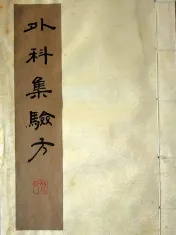 外科集驗方